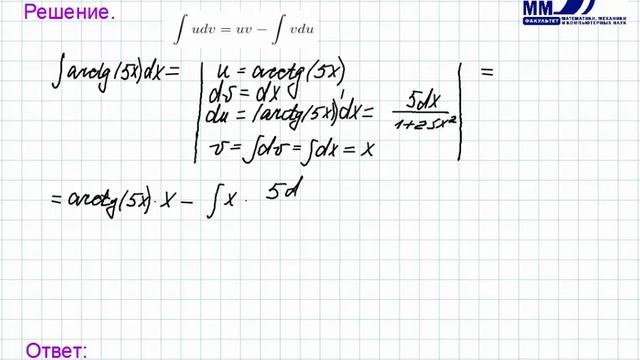 Решение.
ММ
ФАКУЛЬТЕТ МАТЕМАТИКИ, МЕХАНИКИ И КОМПЬЮТЕРНЫХ НАУК
∫ udv = uv − ∫ vdu
∫arctg(5x)dx = | u = arctg(5x) | =
dv = dx
du = (arctg(5x))'dx = 5dx/(1+25x²)
v = ∫dv = ∫dx = x
= arctg(5x)·x − ∫x · 5d
Ответ: